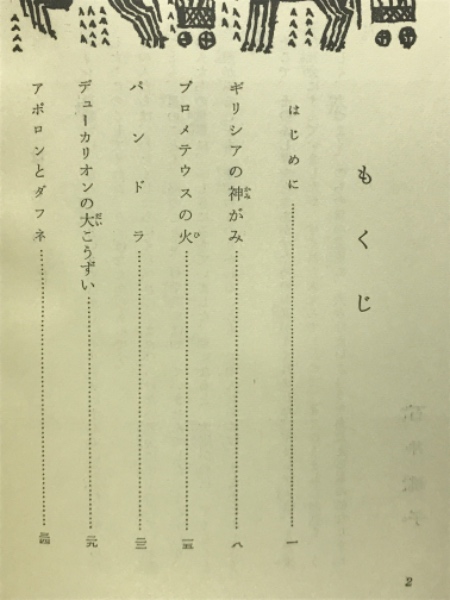 もくじ
はじめに 一
ギリシアの神がみ 八
プロメテウスの火 一五
パンドラ 二三
デューカリオンの大こうずい 二九
アポロンとダフネ 三四
2